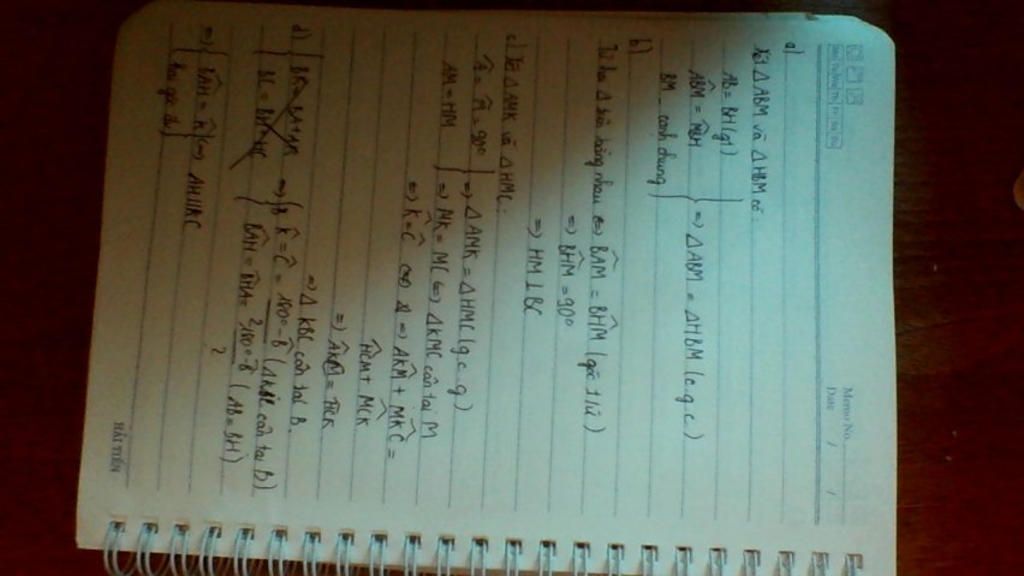 Memo No.
Date / /
a)
Xét △ABM và △HBM có:
AB = BH (gt)
ABM = MBH
BM cạnh chung
=> △ABM = △HBM (c.g.c)
b)
Từ hai △ bằng nhau <=> BAM = BHM (góc t/ứ)
=> BHM = 90°
=> HM ⊥ BC
c) Xét △AMK và △HMC:
A = H = 90°
AM = HM
=> △AMK = △HMC (g.c.g)
=> MK = MC <=> △KMC cân tại M
=> K = C <=> => AKM + MKC =
HCM + MCK
=> = 
=> △KBC cân tại B.
d) BK = BA + AK
BC = BH + HC
=> K = C = 180° - B (△KBC cân tại B)
BAH = BHA = 180° - B (AB = BH)
2
=> BAH = K <=> AH // KC
hai góc
HẢI TIẾN